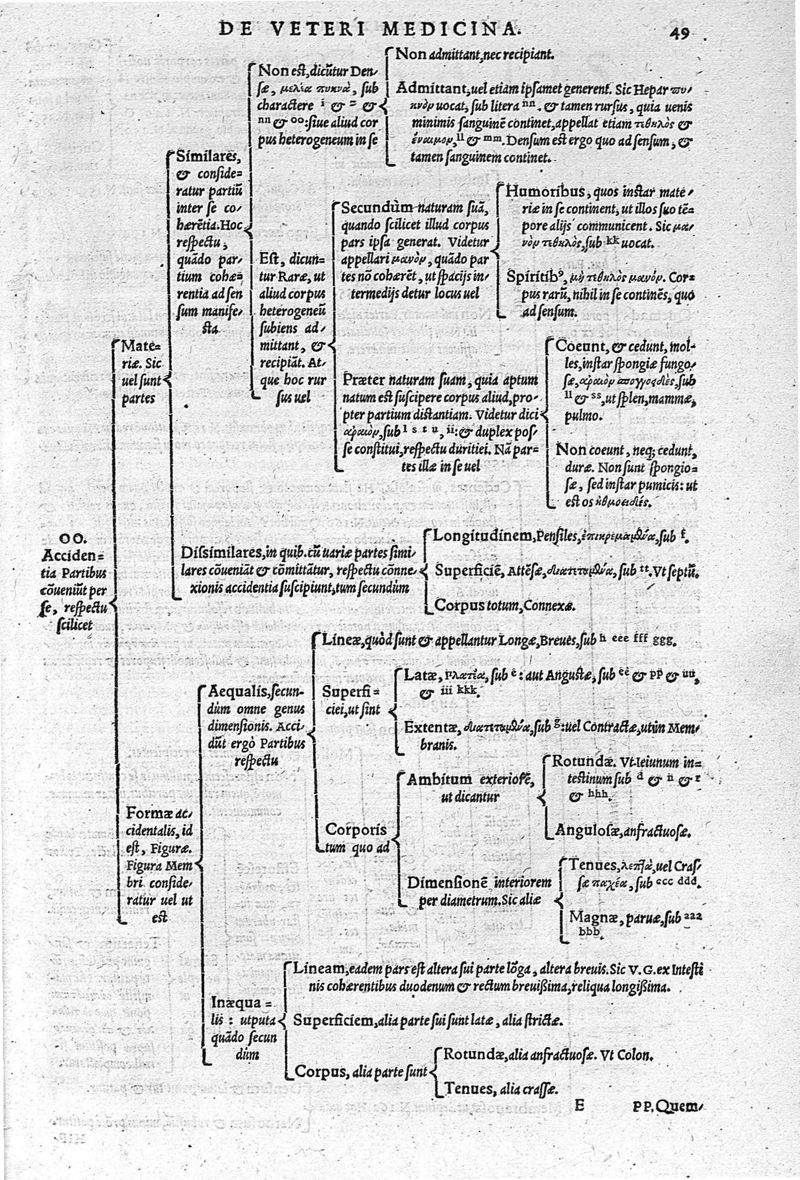 DE VETERI MEDICINA.
49
OO.
Acciden=
tia Partibus
cōueniūt per
se, respectu
scilicet
Mate=
riæ. Sic
uel sunt
partes
Similares,
& conside=
ratur partiū
inter se co-
hærētia. Hoc
respectu,
quādo par-
tium cohæ=
rentia ad sen
sum manife=
sta
Non est, dicūtur Den-
sæ, μελία πυκνὰ, sub
charactere i & = &
nn & oo: siue aliud cor
pus heterogeneum in se
Non admittant, nec recipiant.
Admittant, uel etiam ipsamet generent. Sic Hepar πυ-
κνὸν uocat, sub litera nn. & tamen rursus, quia uenis
minimis sanguinē continet, appellat etiam τιθηλὸς &
ἔναιμον, ll & mm. Densum est ergo quo ad sensum, &
tamen sanguinem continet.
Est, dicun-
tur Raræ, ut
aliud corpus
heterogeneū
subiens ad-
mittant, &
recipiāt. At-
que hoc rur
sus uel
Secundùm naturam suā,
quando scilicet illud corpus
pars ipsa generat. Videtur
appellari μανὸν, quādo par
tes nō cohærēt, ut spacijs in-
termedijs detur locus uel
Humoribus, quos instar mate-
riæ in se continent, ut illos suo tē-
pore alijs communicent. Sic μα-
νὸν τιθηλὸς, sub kk uocat.
Spiritibꝰ, μὴ τιθηλὸς μανόν. Cor-
pus rarū, nihil in se continēs, quo
ad sensum.
Præter naturam suam, quia aptum
natum est suscipere corpus aliud, pro-
pter partium distantiam. Videtur dici
ἀραιὸν, sub l s t u, ii: & duplex pos-
se constitui, respectu duritiei. Nā par-
tes illæ in se uel
Coeunt, & cedunt, mol-
les, instar spongiæ fungo-
sæ, ἀραιὸν σπογγοειδὲς, sub
ll & ss, ut splen, mammæ,
pulmo.
Non coeunt, neq; cedunt,
duræ. Non sunt spongio-
sæ, sed instar pumicis: ut
est os ἠθμοειδές.
Dissimilares, in quib. cū uariæ partes simi-
lares cōueniāt & cōmittātur, respectu cōnne-
xionis accidentia suscipiunt, tum secundùm
Longitudinem, Pensiles, ἐπικρεμαμῆνα, sub f.
Superficiē, Attēsæ, διατεταμῆνα, sub tt. Vt septū.
Corpus totum, Connexæ.
Formæ ac-
cidentalis, id
est, Figuræ.
Figura Mem
bri conside-
ratur uel ut
est
Aequalis, secun-
dùm omne genus
dimensionis. Acci-
dūt ergò Partibus
respectu
Lineæ, quòd sunt & appellantur Longæ, Breues, sub h eee fff ggg.
Superfi=
ciei, ut sint
Latæ, πλατέα, sub e: aut Angustæ, sub ee & pp & uu,
& iii kkk.
Extentæ, διατεταμῆνα, sub g: uel Contractæ, ut in Mem
branis.
Corporis
tum quo ad
Ambitum exteriorē,
ut dicantur
Rotundæ. Vt Ieiunum in=
testinum sub d & n & z
& hhh.
Angulosæ, anfractuosæ.
Dimensionē interiorem
per diametrum. Sic aliæ
Tenues, λεπτὰ, uel Cras-
sæ παχέα, sub ccc ddd.
Magnæ, paruæ, sub aaa
bbb.
Inæqua=
lis: utputa
quādo secun
dùm
Lineam, eadem pars est altera sui parte lōga, altera breuis. Sic V.G. ex Intesti
nis cohærentibus duodenum & rectum breuißima, reliqua longißima.
Superficiem, alia parte sui sunt latæ, alia strictæ.
Corpus, alia parte sunt
Rotundæ, alia anfractuosæ. Vt Colon.
Tenues, alia crassæ.
E
PP. Quem-